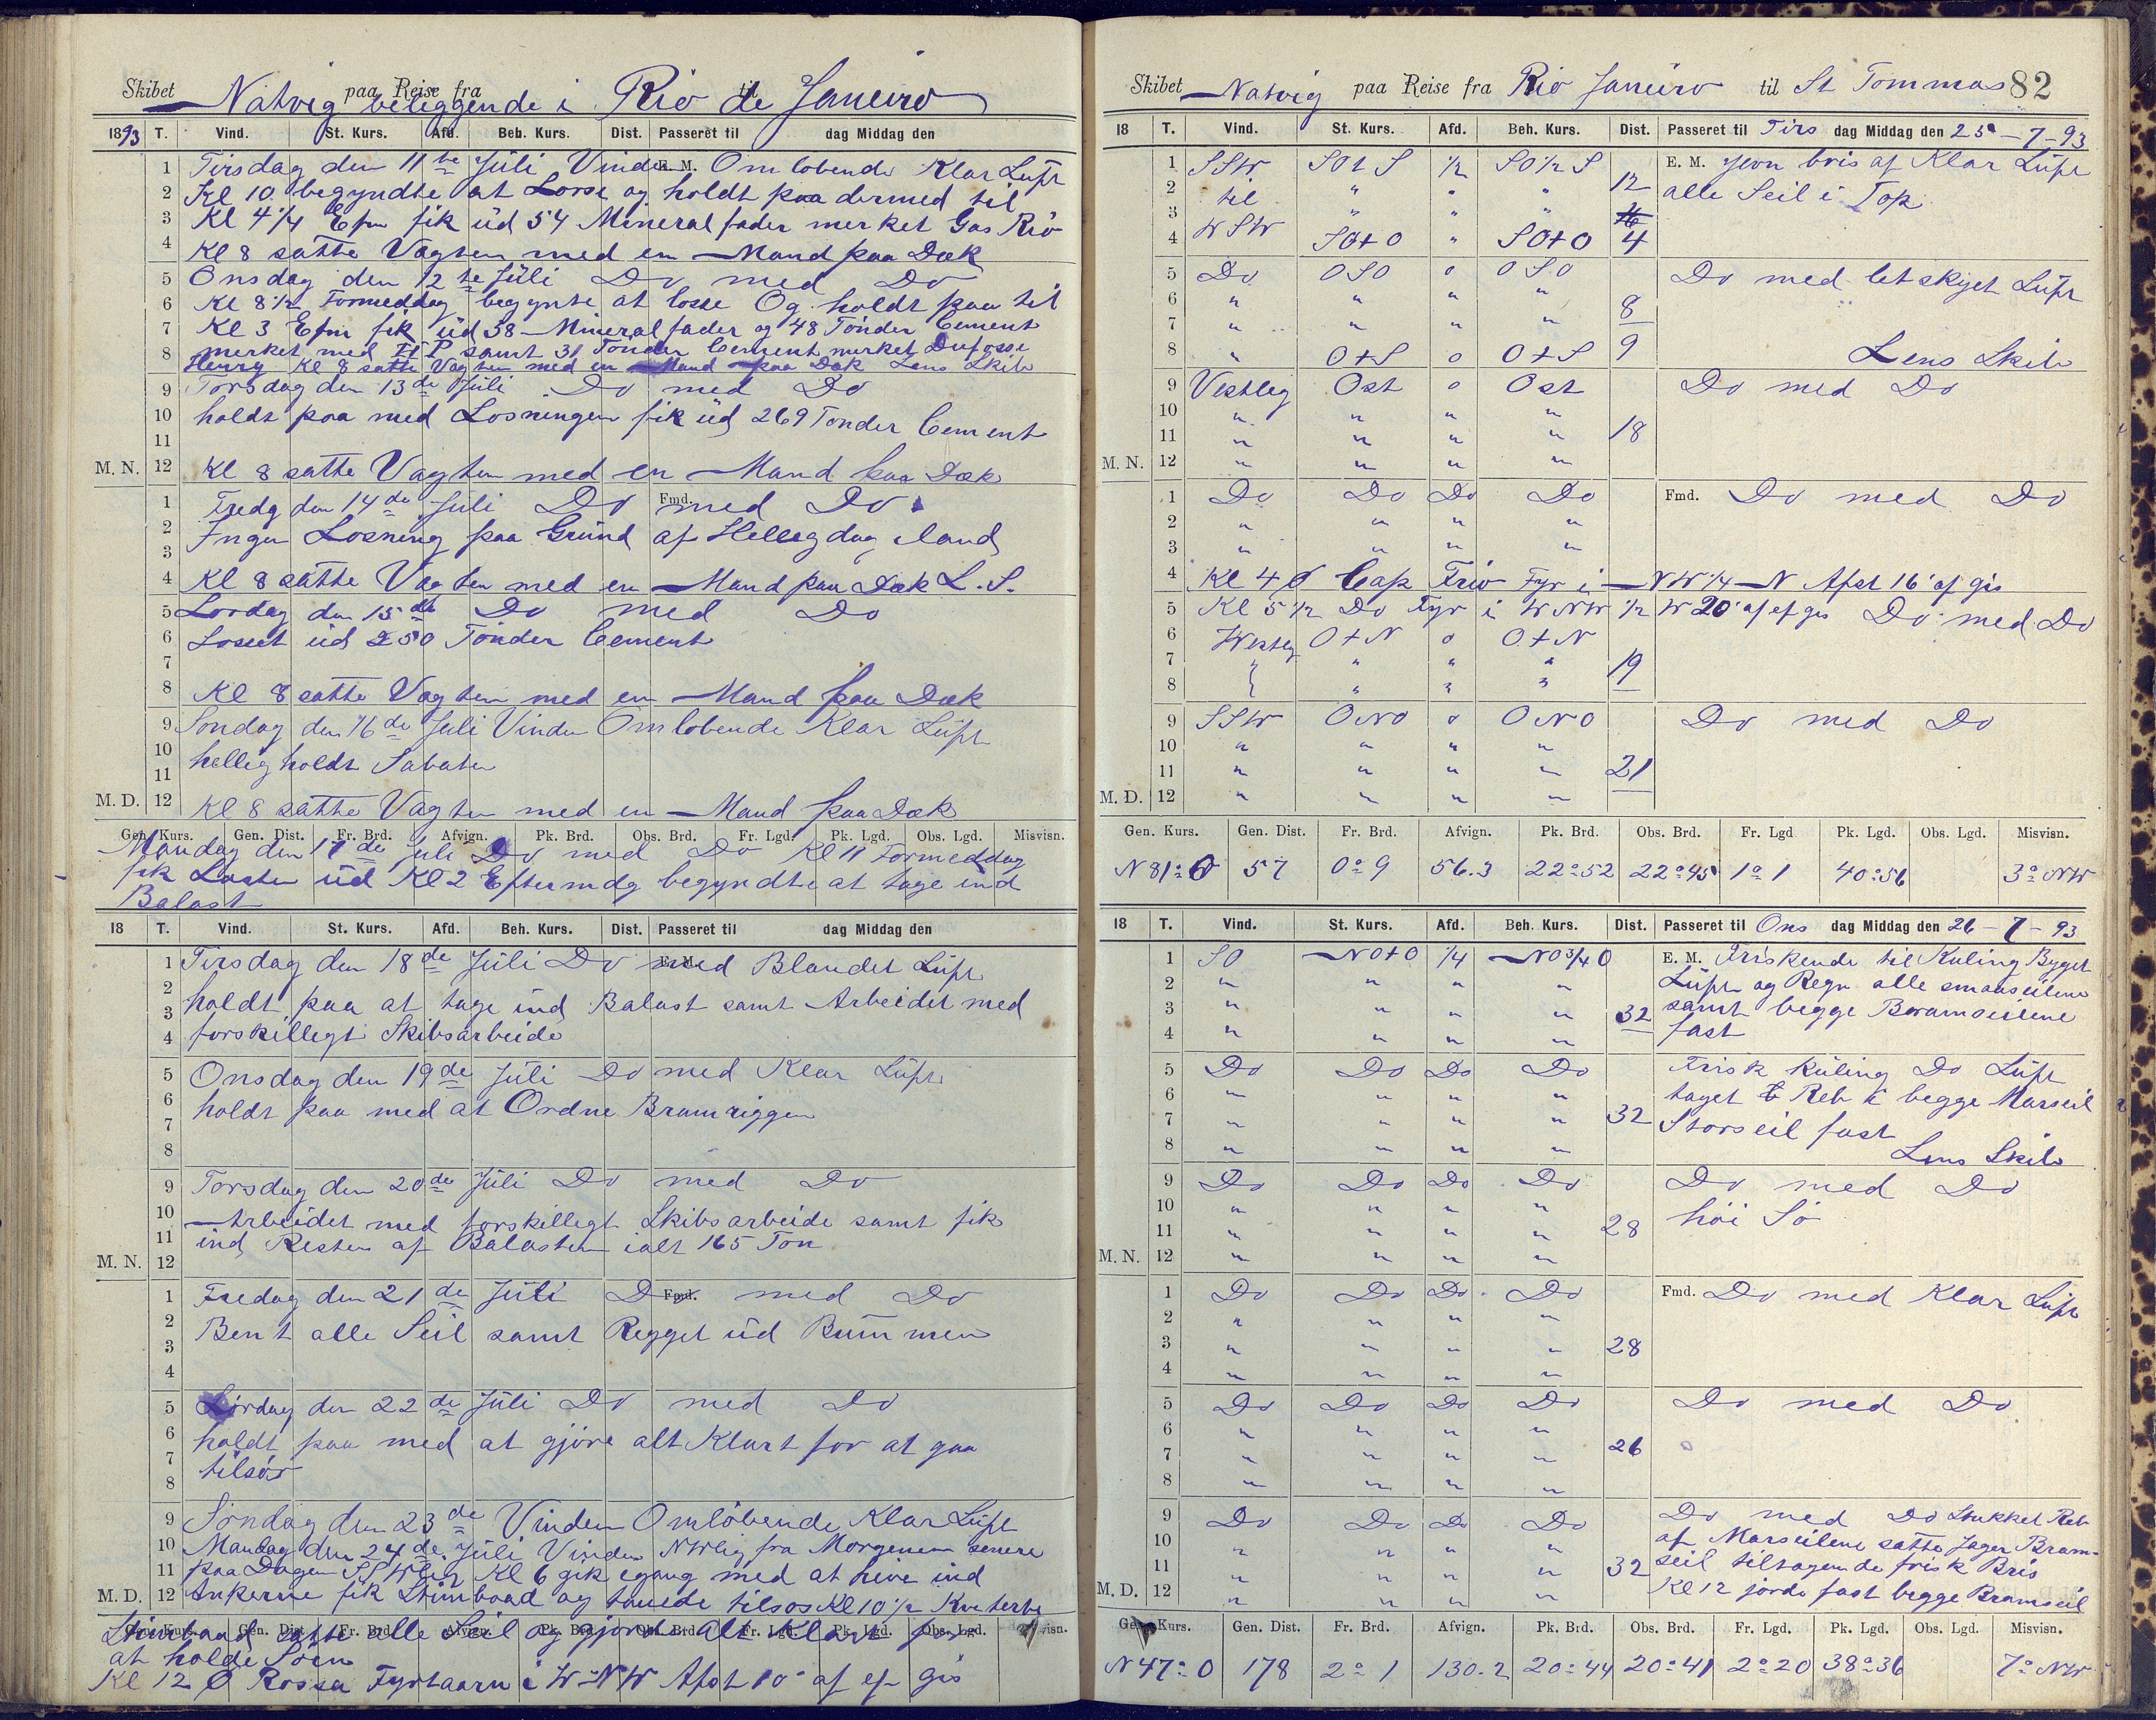 Skibet Natvig paa Reise fra beleggende i til Rio de Janeiro
1893 T. Vind. St. Kurs. Afd. Beh. Kurs. Dist. Passeret til dag Middag den
1 Tirsdag den 11te Juli Vinden E. M. Omlobende Klar Lüft
2 Kl 10 begyndte at Losse og holdt paa dermed til
3 Kl 4 1/4 Efm fik üd 54 Mineralfader merket Gas Rio
4 Kl 8 satte Vagten med en Mand paa Dæk
5 Onsdag den 12te Jüli Do med Do
6 Kl 8 1/2 Formeddag begynte at losse Og holdt paa til
7 Kl 3 Efm fik üd 38 Mineralfader og 48 Tönder Cement
8 merket med samt 31 Tönder Cement merket Dufosse
Henry Kl 8 satte Vagten med en Mand paa Dæk Lens Skib
9 Torsdag den 13de Jüli Do med Do
10 holdt paa med Losningen fik üd 269 Tonder Cement
11
M. N. 12 Kl 8 satte Vagten med en Mand paa Dæk
1 Fredg den 14de Jüli Do Fmd. med Do
2 Ingen Losning paa Grund af Helligdag iland
3
4 Kl 8 satte Vagten med en Mand paa Dæk L. S.
5 Lordag den 15de Do med Do
6 Losset üd 250 Tönder Cement
7
8 Kl 8 satte Vagten med en Mand paa Dæk
9 Sondag den 16de Juli Vinden Omlobende Klar Lüft
10 hellig holdt Sabaten
11
M. D. 12 Kl 8 satte Vagten med en Mand paa Dæk
Gen. Kurs. Gen. Dist. Fr. Brd. Afvign. Pk. Brd. Obs. Brd. Fr. Lgd. Pk. Lgd. Obs. Lgd. Misvisn.
Mandag den 17de juli Do med Do Kl 11 Formeddag
fik Lasten üd Kl 2 Eftermdg begyndte at tage ind
Balast
18 T. Vind. St. Kurs. Afd. Beh. Kurs. Dist. Passeret til dag Middag den
1 Tirsdag den 18de Jüli Do E. M. med Blandet Lüft
2 holdt paa at tage ind Balast samt Arbeidet med
3
4 forskillegt Skibsarbeide
5 Onsdag den 19de Jüli Do med Klar Lüft
6 holdt paa med at Ordne Bramriggen
7
8
9 Torsdag den 20de Jüli Do med Do
10 Arbeidet med forskillegt Skibsarbeide samt fik
11 ind Resten af Balasten ialt 165 Ton
M. N. 12
1 Fredag den 21de Jüli Do Fmd. med Do
2 Bent alle Seil samt Regget üd Bummen
3
4
5 Lördag den 22de Jüli Do med Do
6 holdt paa med at gjöre alt Klart for at gaa
7 tilsös
8
9 Söndag den 23de Vinden Omlöbende Klar Lüft
10 Mandag den 24de Jüli Vinden NWlig fra Morgenen senere
11 paa Dagen SSWlig Kl 6 gik igang med at hive ind
M. D. 12 Ankerne fik Stimbaad og tauede tilsos Kl 10 1/2
Stimbaad satte alle Seil og gjorde Alt Klart for
Gen. Kurs. Gen. Dist. Fr. Brd. Afvign. Pk. Brd. Obs. Brd. Fr. Lgd. Pk. Lgd. Obs. Lgd. Misvisn.
at holde Söen
Kl 12 Rossa Fyrtaarn i W-NW Afst 10' af ef gis
Skibet Natvig paa Reise fra Rio Janeiro til St Tommas 82
18 T. Vind. St. Kurs. Afd. Beh. Kurs. Dist. Passeret til Tirs dag Middag den 25-7-93
1 SSW SOtS 1/2 SO 1/2 S E. M. Jevn bris af Klar Lüft
2 til " " " 12 alle Seil i Top
3 " " "
4 WSW SO+O " SO+O 4
5 Do OSO o OSO Do med letskyet Lüft
6 " " " " 8
7 " " " "
8 " O+S o O+S 9 Lens Skib
9 Vestleg Ost o Ost Do med Do
10 " " " "
11 " " " " 18
M. N. 12 " " " "
1 Do Do Do Do Fmd. Do med Do
2 " " " "
3 " " " "
4 Kl 4 Cap Frio Fyr i NW 1/4 N Afst 16' af gis
5 Kl 5 1/2 Do Fyr i WNW 1/2 W 20' af ef gis Do med Do
6 Westleg O+N o O+N
7 " " " 19
8 " " "
9 SSW ONO o ONO Do med Do
10 " " " "
11 " " " " 21
M. D. 12 " " " "
Gen. Kurs. Gen. Dist. Fr. Brd. Afvign. Pk. Brd. Obs. Brd. Fr. Lgd Pk. Lgd. Obs. Lgd. Misvisn.
N 81° O 57 0° 9 56.3 22°52 22°45 1° 1 40°56 3° NW
18 T. Vind. St. Kurs. Afd. Beh. Kurs. Dist. Passeret til Ons dag Middag den 26-7-93
1 SO NO+O 1/4 NO 3/4 O E. M. Friskende til Kuling Byget
2 " " " " Lüft og Regn alle smaaseilene
3 " " " " 32 samt begge Bramseilene
4 " " " " fast
5 Do Do Do Do Frisk Küling Do Lüft
6 " " " " taget Reb i begge Marseil
7 " " " " 32 Storseil fast
8 " " " " Lens Skib
9 Do Do Do Do Do med Do
10 " " " " höi Sö
11 " " " " 28
M. N. 12 " " " "
1 Do Do Do Do Fmd. Do med Klar Lüft
2 " " " "
3 " " " " 28
4 " " " "
5 Do Do Do Do Do med Do
6 " " " "
7 " " " " 26
8 " " " "
9 Do Do Do Do Do med Do Stukket Reb
10 " " " " af Marseilene satte Jager Bram-
11 " " " " 32 seil tiltagende frisk Bris
M. D. 12 " " " " Kl 12 jorde fast begge Bramseil
Gen. Kurs. Gen. Dist. Fr. Brd. Afvign. Pk. Brd. Obs. Brd. Fr. Lgd. Pk. Lgd. Obs. Lgd. Misvisn.
N 47° O 178 2° 1 130.2 20°44 20°41 2°20 38°36 7° NW